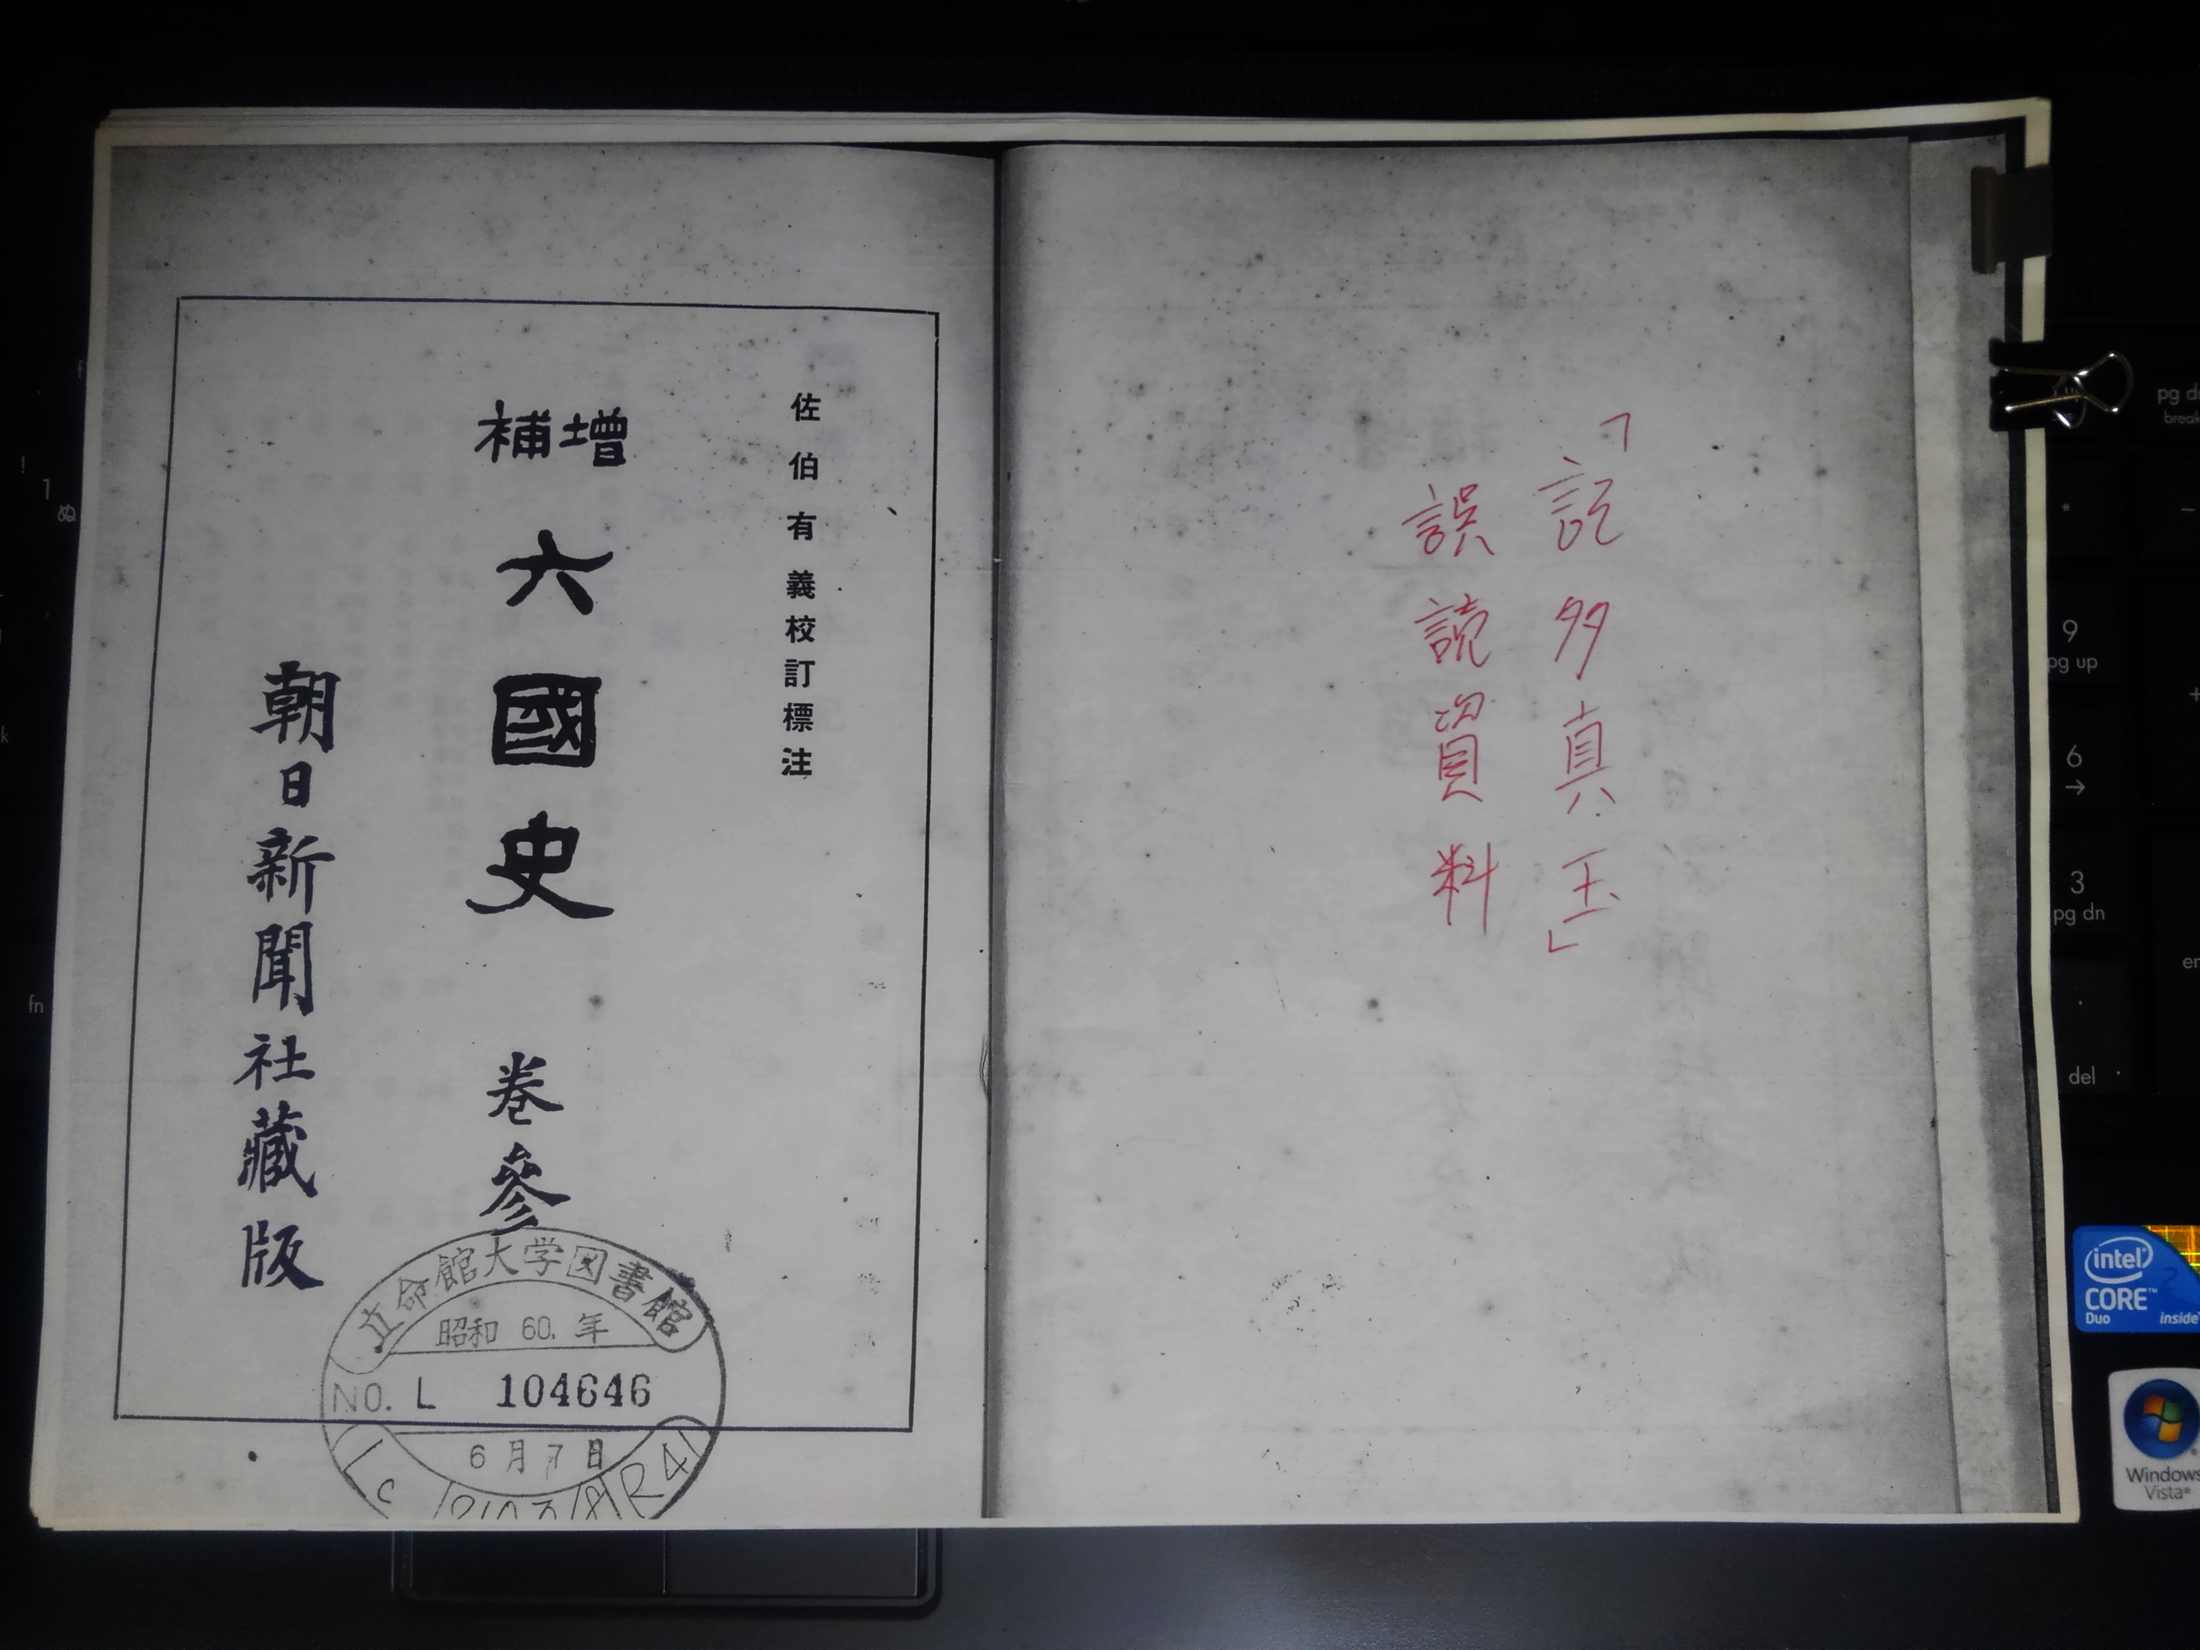 「記多真玉」
誤読資料
佐伯有義校訂標注
增補
六國史 卷參
朝日新聞社藏版
立命館大学図書館
昭和 60. 年
NO. L 104646
6月7日
R41
fn
1
ぬ
!
pg dn
break
*
9
pg up
6
→
3
pg dn
del
+
intel
CORE™
Duo
inside
Windows
Vista